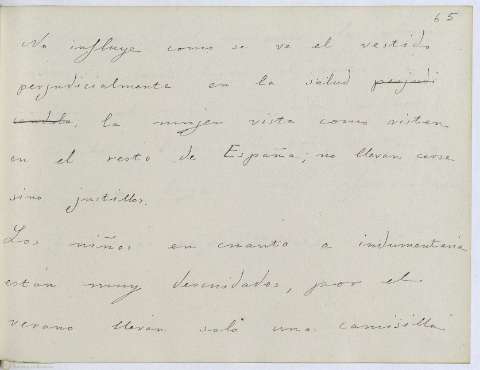 65
No influye como se ve el vestido
perjudicialmente en la salud perjudi
candola, la mujer viste como visten
en el resto de España; no llevan corse
sino justillos.
Los niños en cuanto a indumentaria
están muy descuidados, por el
verano llevan solo una camisilla